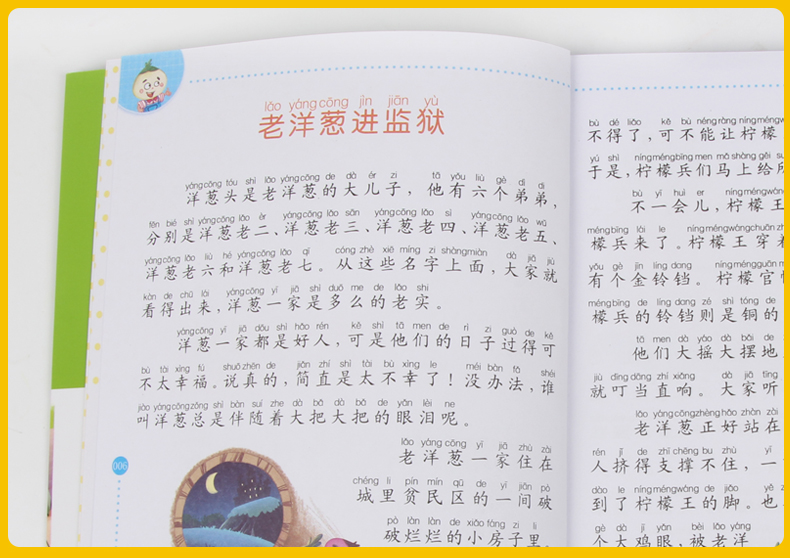 lǎo yáng cōng jìn jiān yù
老洋葱进监狱
yáng cōng tóu shì lǎo yáng cōng de dà ér zi tā yǒu liù gè dì di
洋葱头是老洋葱的大儿子，他有六个弟弟，
fēn bié shì yáng cōng lǎo èr yáng cōng lǎo sān yáng cōng lǎo sì yáng cōng lǎo wǔ
分别是洋葱老二、洋葱老三、洋葱老四、洋葱老五、
yáng cōng lǎo liù hé yáng cōng lǎo qī cóng zhè xiē míng zi shàng miàn dà jiā jiù
洋葱老六和洋葱老七。从这些名字上面，大家就
kàn de chū lái yáng cōng yī jiā shì duō me de lǎo shí
看得出来，洋葱一家是多么的老实。
yáng cōng yī jiā dōu shì hǎo rén kě shì tā men de rì zi guò de kě
洋葱一家都是好人，可是他们的日子过得可
bù tài xìng fú shuō zhēn de jiǎn zhí shì tài bù xìng le méi bàn fǎ shéi
不太幸福。说真的，简直是太不幸了！没办法，谁
jiào yáng cōng zǒng shì bàn suí zhe dà bǎ dà bǎ de yǎn lèi ne
叫洋葱总是伴随着大把大把的眼泪呢。
lǎo yáng cōng yī jiā zhù zài
老洋葱一家住在
chéng lǐ pín mín qū de yī jiān pò
城里贫民区的一间破
pò làn làn de xiǎo fáng zi lǐ
破烂烂的小房子里。
006
bù dé liǎo kě bù néng ràng níng méng
不得了，可不能让柠檬
yú shì níng méng bīng men mǎ shàng gěi suǒ
于是，柠檬兵们马上给所
bù yī huì er níng méng
不一会儿，柠檬
méng bīng lái le níng méng wáng chuān zhe
檬兵来了。柠檬王穿着
yǒu gè jīn líng dang níng méng guān
有个金铃铛。柠檬官
méng bīng de líng dang zé shì tóng de
檬兵的铃铛则是铜的
tā men dà yáo dà bǎi de
他们大摇大摆地
jiù dīng dāng zhí xiǎng dà jiā tīng
就叮当直响。大家听
lǎo yáng cōng zhèng hǎo zhàn zài
老洋葱正好站在
rén jǐ dé zhī chēng bu zhù yī
人挤得支撑不住，一
dào le níng méng wáng de jiǎo yě
到了柠檬王的脚。也
gè dà jī yǎn bèi lǎo yáng
个大鸡眼，被老洋